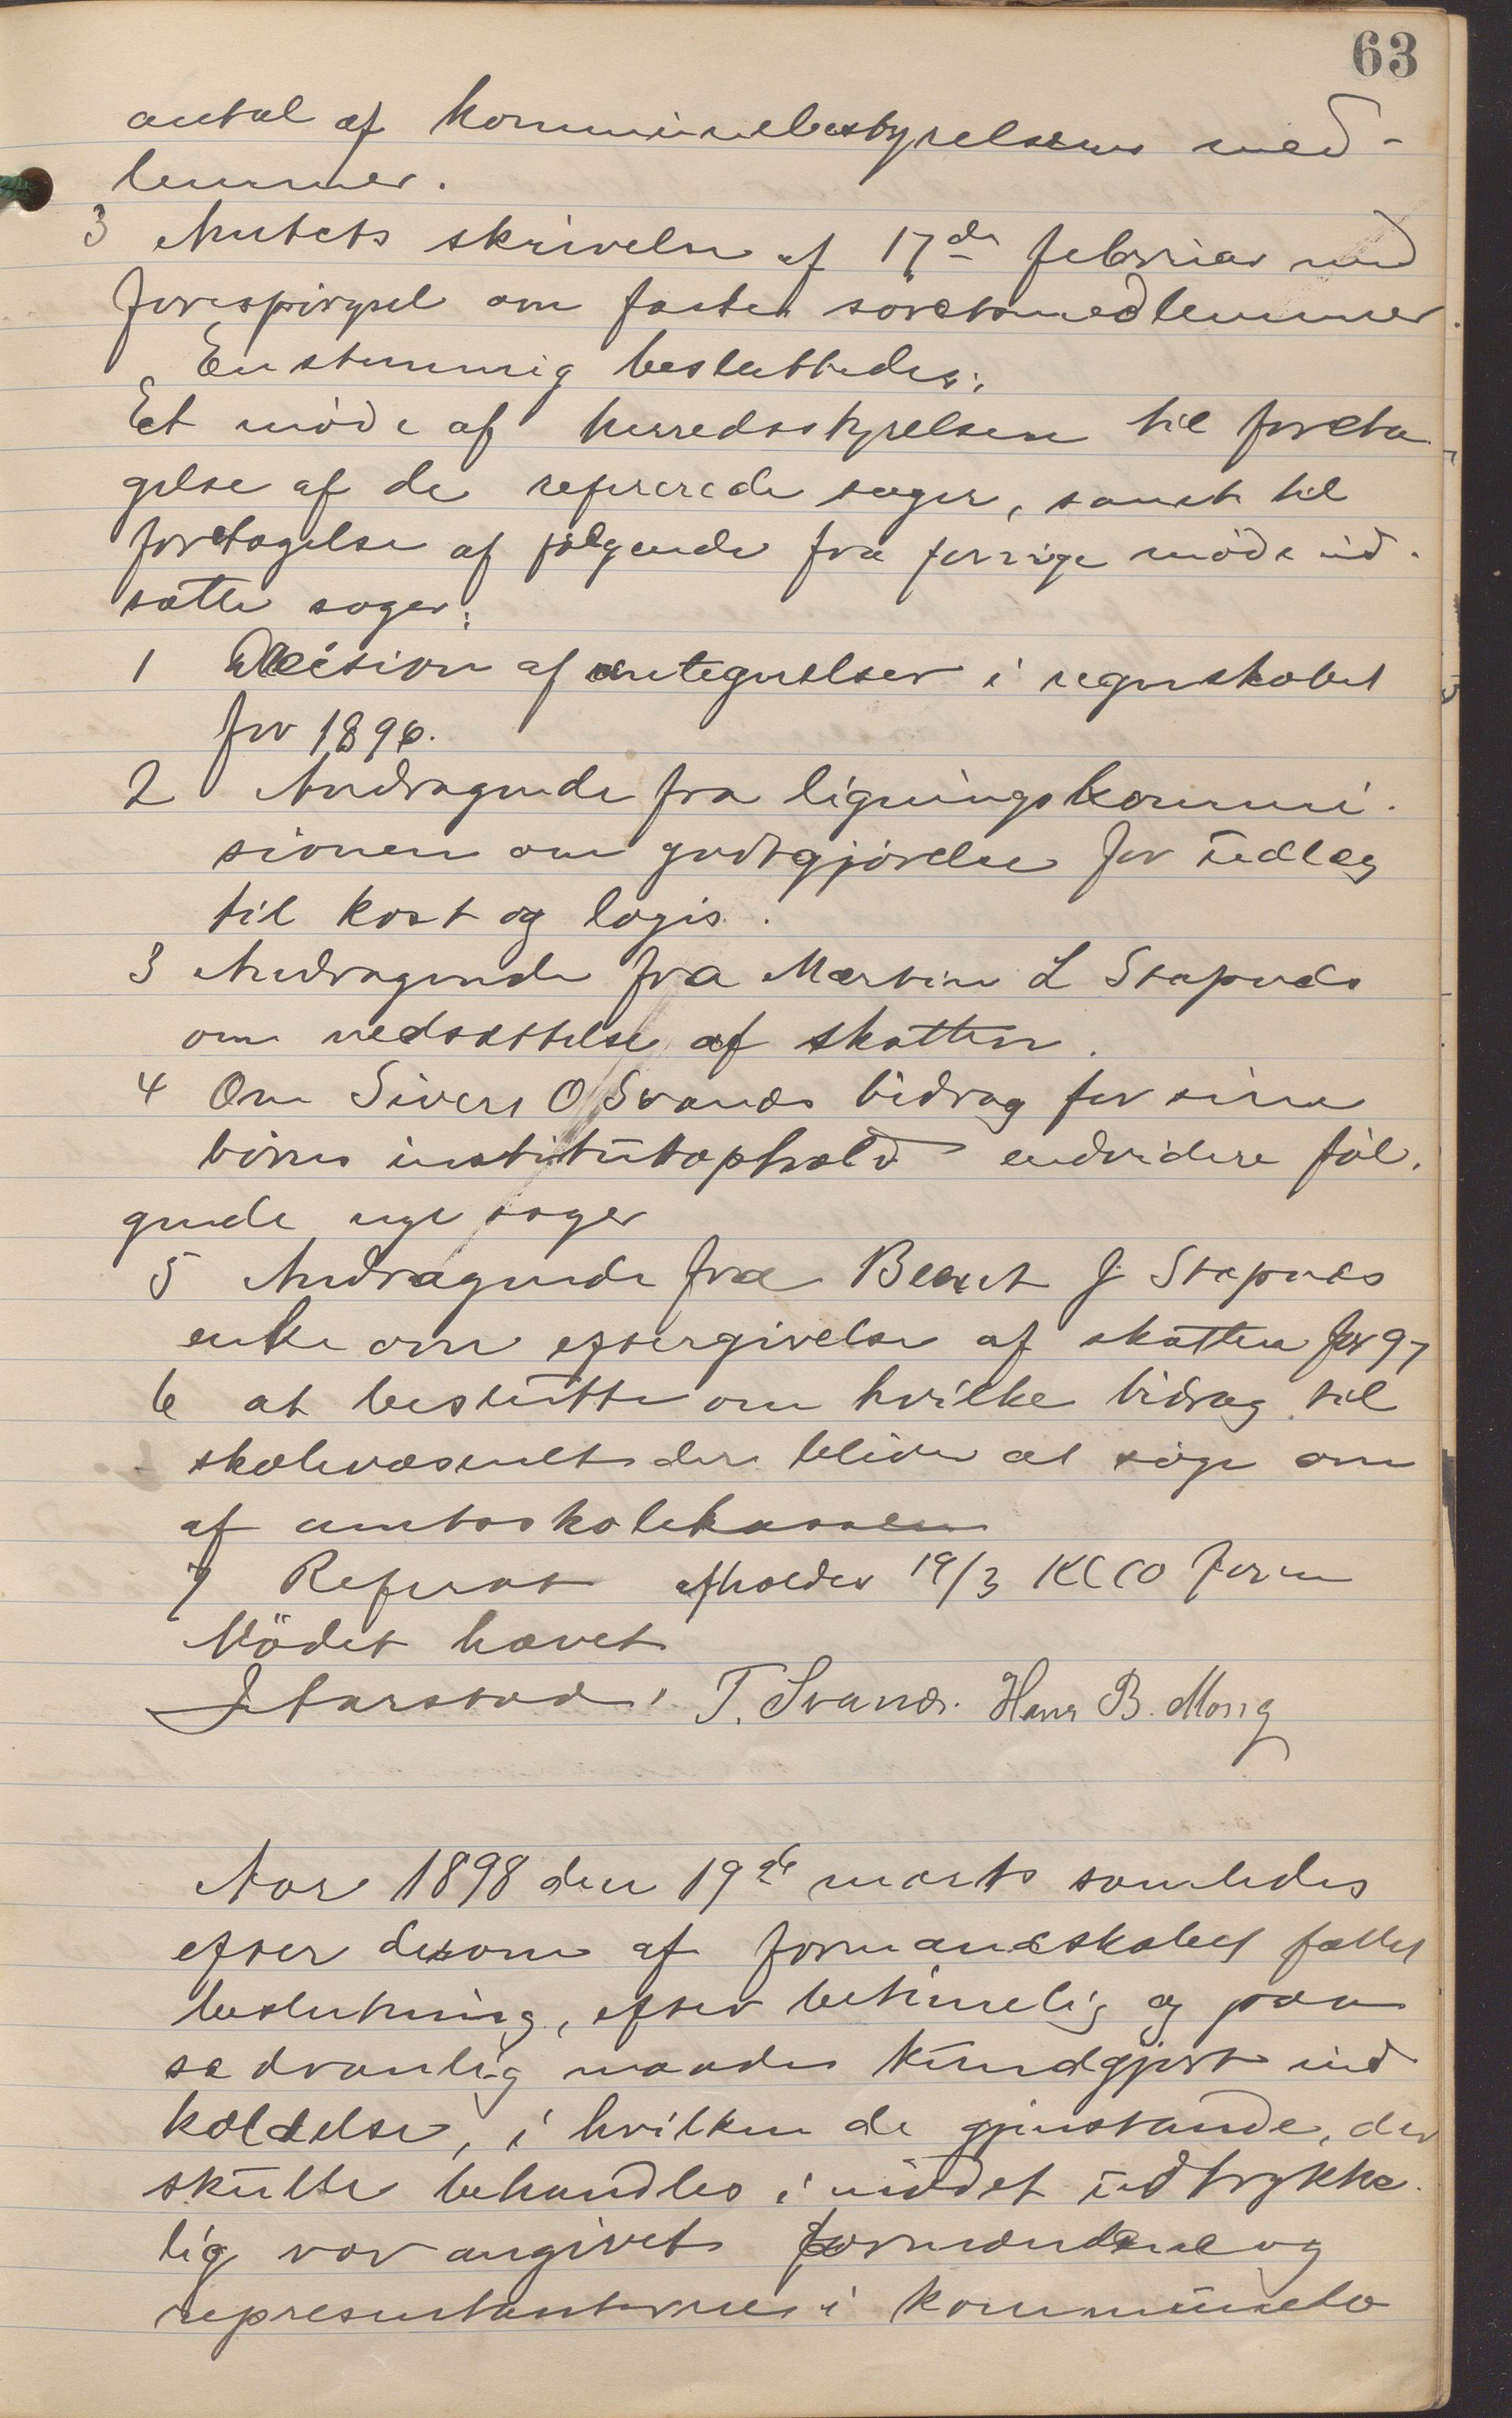 63
antal af kommunebestyrelsens med-
lemmer.
3 Amtets skrivelse af 17de februar med
forespørgsel om faste søretsmedlemmer.
Enstemmig besluttedes:
Et møde af herredsstyrelsen til foreta-
gelse af de refererede sager, samt til
foretagelse af følgende fra forrige møde ud-
satte sager:
1 Decision af antegnelser i regnskabet
for 1896.
2 Andragende fra ligningskommi-
sionen om godtgjørelse for udlæg
til kost og logis.
3 Andragende fra Martin L Stapnes
om nedsættelse af skatten.
4 Om Sivert O Svanes bidrag for sine
børns institutophold endvidere føl-
gende nye sager
5 Andragende fra Berent J Stapnes
enke om eftergivelse af skatten for 97
6 at beslutte om hvilke bidrag til
skolevæsenet der bliver at søge om
af amtsskolekassen
7 Referat afholdes 19/3 Kl 10 form
Mödet hævet
J Aarstad, T. Svanes. Hans B. Mong
Aar 1898 den 19de marts samledes
efter dersom af formandskabet fattet
beslutning, efter betimelig og paa
sædvanlig maade kundgjort ind
kaldelse, i hvilken de gjenstande, der
skulle behandles i mødet udtrykke-
lig var angivet formændene og
representanterne i kommunebe